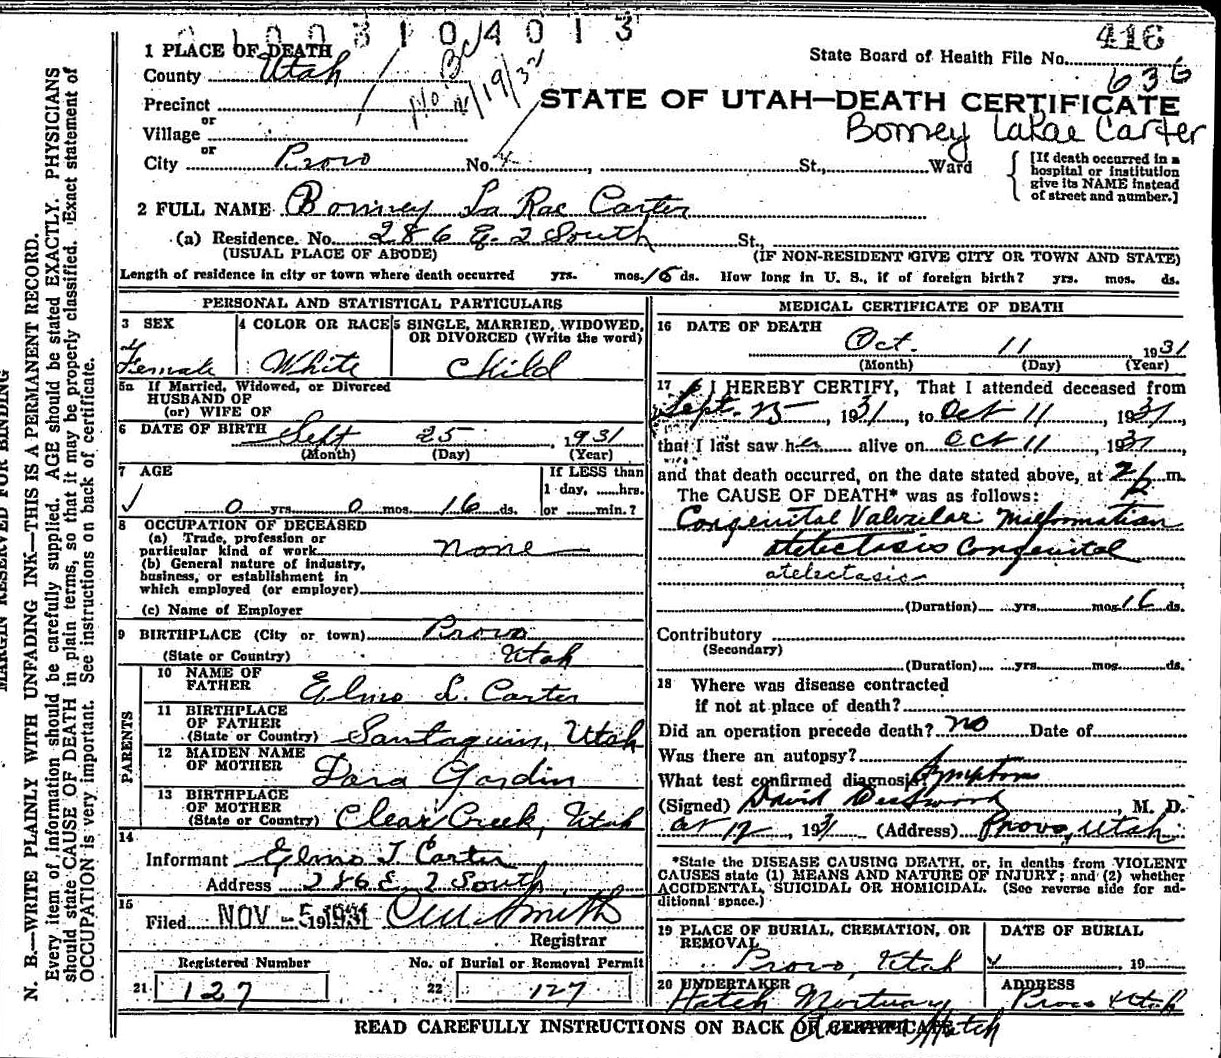 1003104013
416
State Board of Health File No.
636
1 PLACE OF DEATH
County Utah
No BC 11/19/32
STATE OF UTAH—DEATH CERTIFICATE
Precinct
or
Bonney LaRae Carter
Village
or
City Provo No. 4 St., Ward
[If death occurred in a
hospital or institution
give its NAME instead
of street and number.]
2 FULL NAME Bonney La Rae Carter
(a) Residence. No. 286 E. 2 South St.,
(USUAL PLACE OF ABODE) (IF NON-RESIDENT GIVE CITY OR TOWN AND STATE)
Length of residence in city or town where death occurred yrs. mos. 16 ds. How long in U. S., if of foreign birth? yrs. mos. ds.
PERSONAL AND STATISTICAL PARTICULARS
3 SEX 4 COLOR OR RACE 5 SINGLE, MARRIED, WIDOWED,
OR DIVORCED (Write the word)
Female White Child
5a If Married, Widowed, or Divorced
HUSBAND OF
(or) WIFE OF
6 DATE OF BIRTH Sept 25, 1931
(Month) (Day) (Year)
7 AGE If LESS than
1 day, ......hrs.
0 yrs. 0 mos. 16 ds. or ......min.?
8 OCCUPATION OF DECEASED
(a) Trade, profession or
particular kind of work none
(b) General nature of industry,
business, or establishment in
which employed (or employer)
(c) Name of Employer
9 BIRTHPLACE (City or town) Provo
(State or Country) Utah
PARENTS
10 NAME OF
FATHER Elmo L. Carter
11 BIRTHPLACE
OF FATHER
(State or Country) Santaquin, Utah
12 MAIDEN NAME
OF MOTHER Dora Gardin
13 BIRTHPLACE
OF MOTHER
(State or Country) Clear Creek, Utah
14
Informant Elmo L Carter
Address 286 E. 2 South
15
Filed NOV -5 1931
Smith
Registrar
Registered Number No. of Burial or Removal Permit
21 127 22 127
MEDICAL CERTIFICATE OF DEATH
16 DATE OF DEATH
Oct. 11 1931
(Month) (Day) (Year)
17 I HEREBY CERTIFY, That I attended deceased from
Sept. 25, 1931, to Oct 11, 1931
that I last saw her alive on Oct 11, 1931
and that death occurred, on the date stated above, at 2 p. m.
The CAUSE OF DEATH* was as follows:
Congenital Valvular Malformation
Atelectasis Congenital
atelectasis
(Duration) yrs. mos. 16 ds.
Contributory
(Secondary)
(Duration) yrs. mos. ds.
18 Where was disease contracted
if not at place of death?
Did an operation precede death? no Date of
Was there an autopsy?
What test confirmed diagnosis? Symptoms
(Signed) David Westwood, M. D.
Oct 12, 1931 (Address) Provo, Utah
*State the DISEASE CAUSING DEATH, or, in deaths from VIOLENT
CAUSES state (1) MEANS AND NATURE OF INJURY; and (2) whether
ACCIDENTAL, SUICIDAL OR HOMICIDAL. (See reverse side for ad-
ditional space.)
19 PLACE OF BURIAL, CREMATION, OR
REMOVAL
Provo, Utah
DATE OF BURIAL
19
20 UNDERTAKER
Hatch Mortuary
Hatch
ADDRESS
Provo Utah
READ CAREFULLY INSTRUCTIONS ON BACK OF CERTIFICATE
MARGIN RESERVED FOR BINDING
N. B.—WRITE PLAINLY WITH UNFADING INK—THIS IS A PERMANENT RECORD.
Every item of information should be carefully supplied. AGE should be stated EXACTLY. PHYSICIANS
should state CAUSE OF DEATH in plain terms, so that it may be properly classified. Exact statement of
OCCUPATION is very important. See instructions on back of certificate.